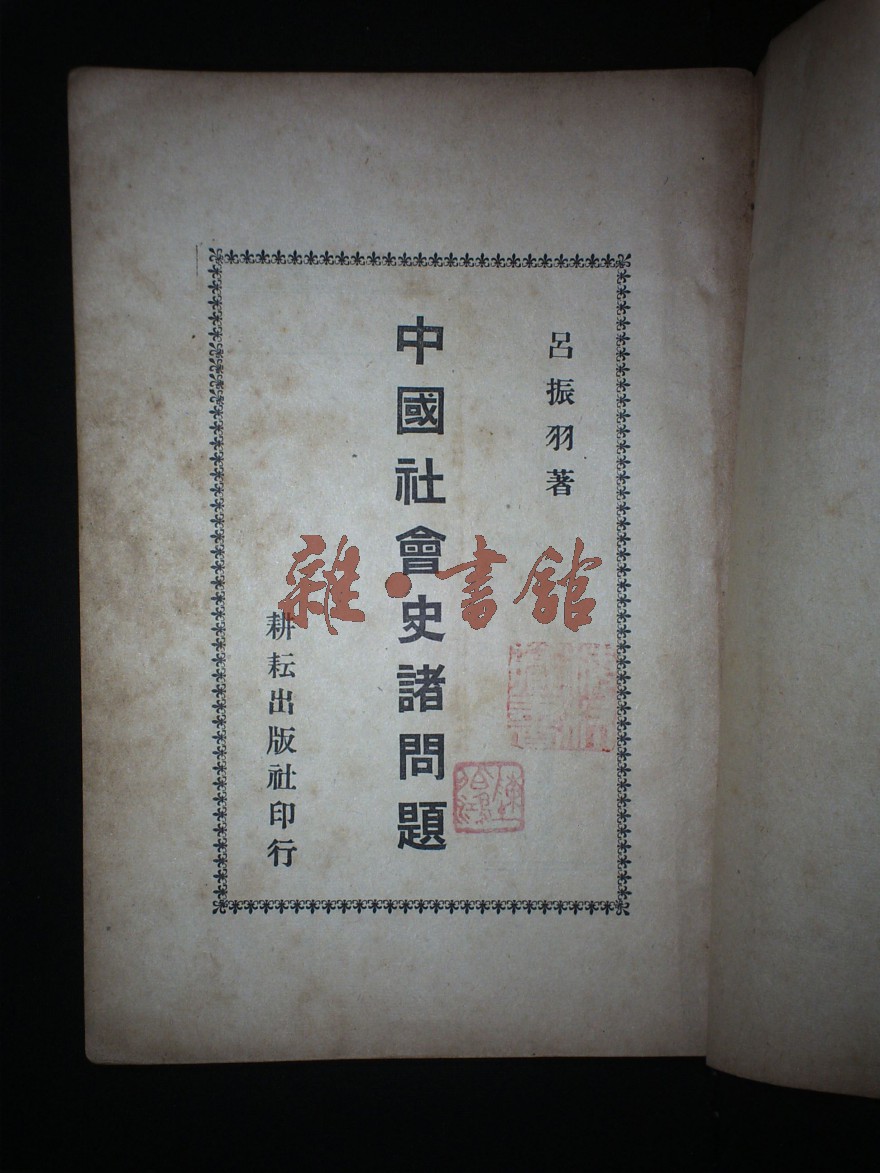 呂振羽著
中國社會史諸問題
耕耘出版社印行
雜·書館